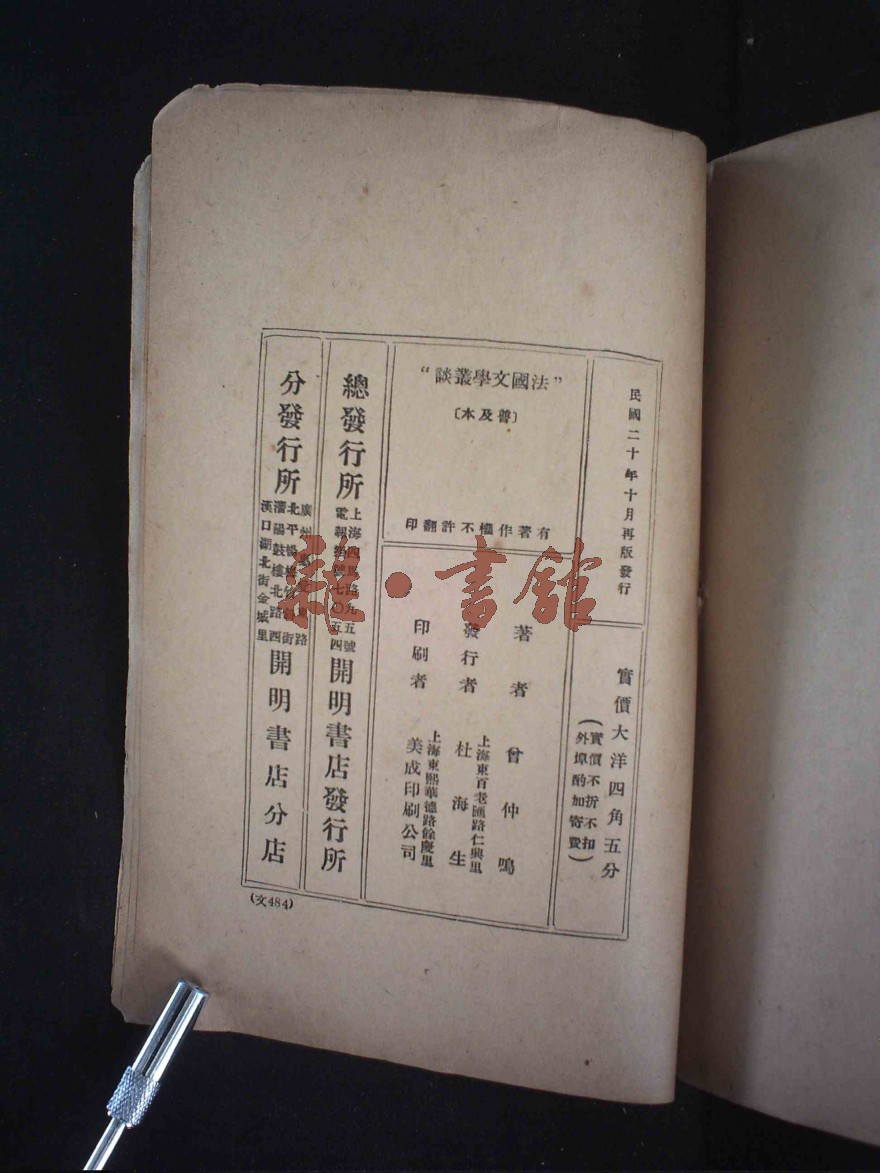 民國二十年十月再版發行
實價大洋四角五分
(實價不折不扣
外埠酌加寄費)
"法國文學叢談"
〔普及本〕
有著作權不許翻印
著者 曾仲鳴
發行者 杜海生
上海東百老匯路仁興里
印刷者 美成印刷公司
上海東熙華德路餘慶里
總發行所
上海四馬路九五號
電報掛號七〇五四
開明書店發行所
分發行所
廣州 東路
北平楊梅竹斜街
瀋陽鼓樓北路西
漢口湖北街金城里
開明書店分店
(文484)
雜·書館